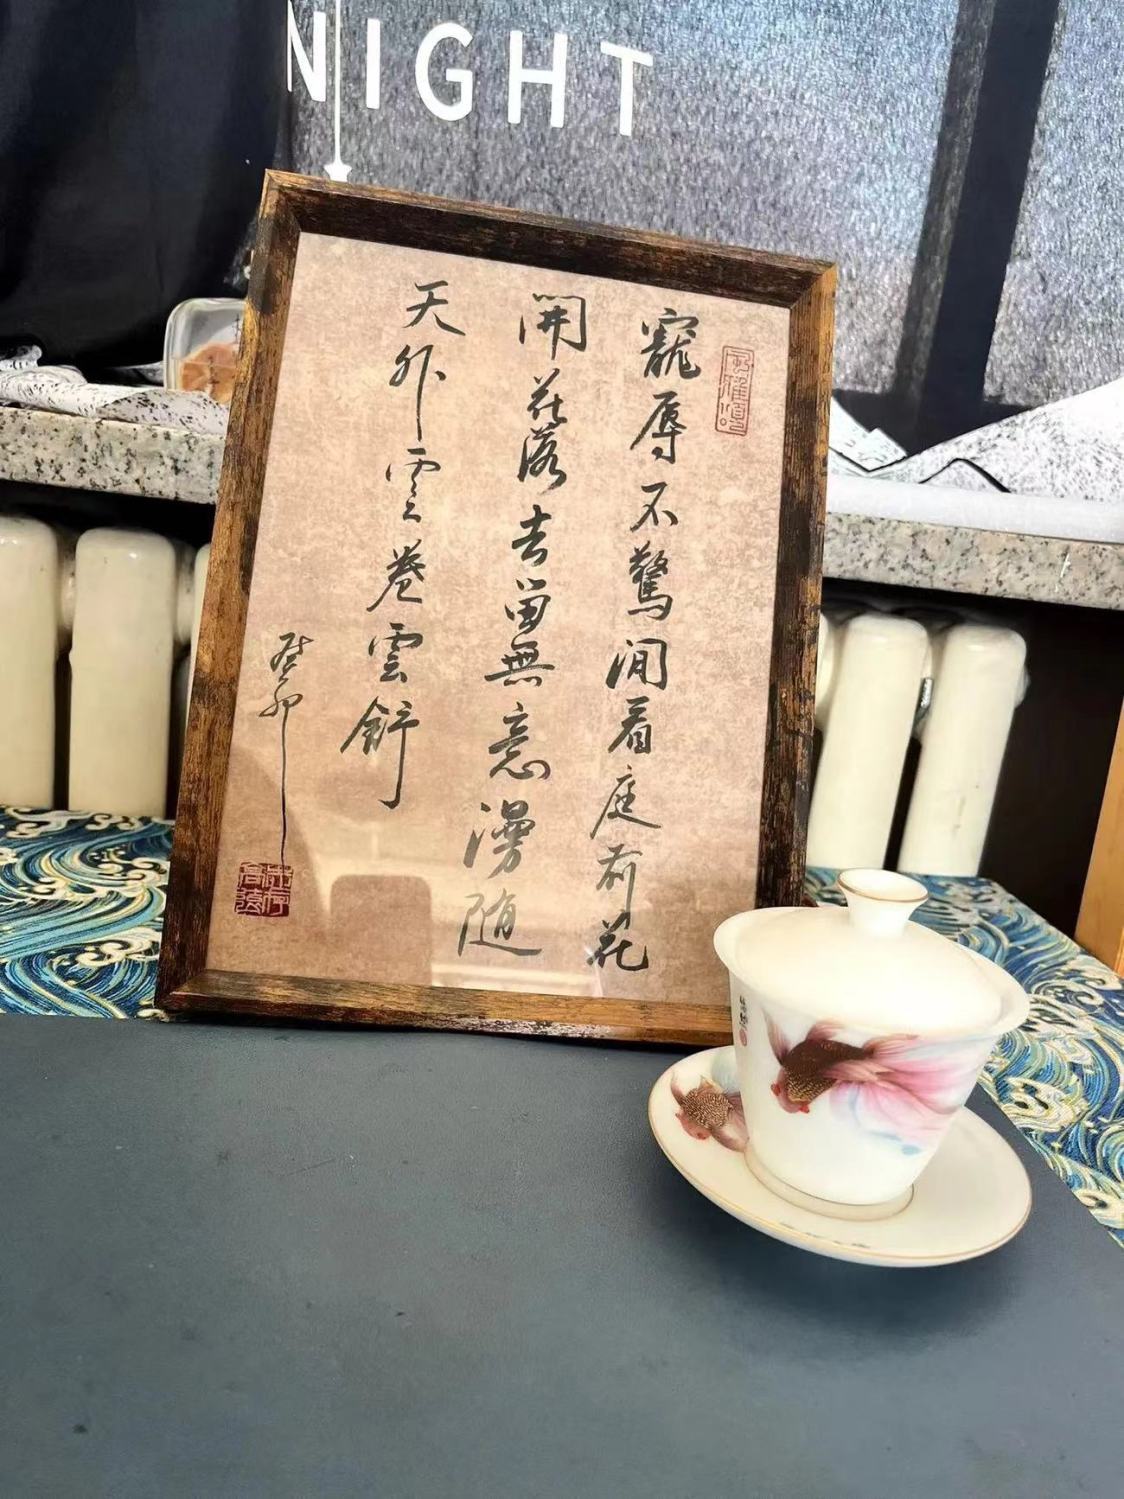 NIGHT
寵辱不驚閒看庭前花
開花落去留無意漫隨
天外雲卷雲舒
癸卯
風雅頌